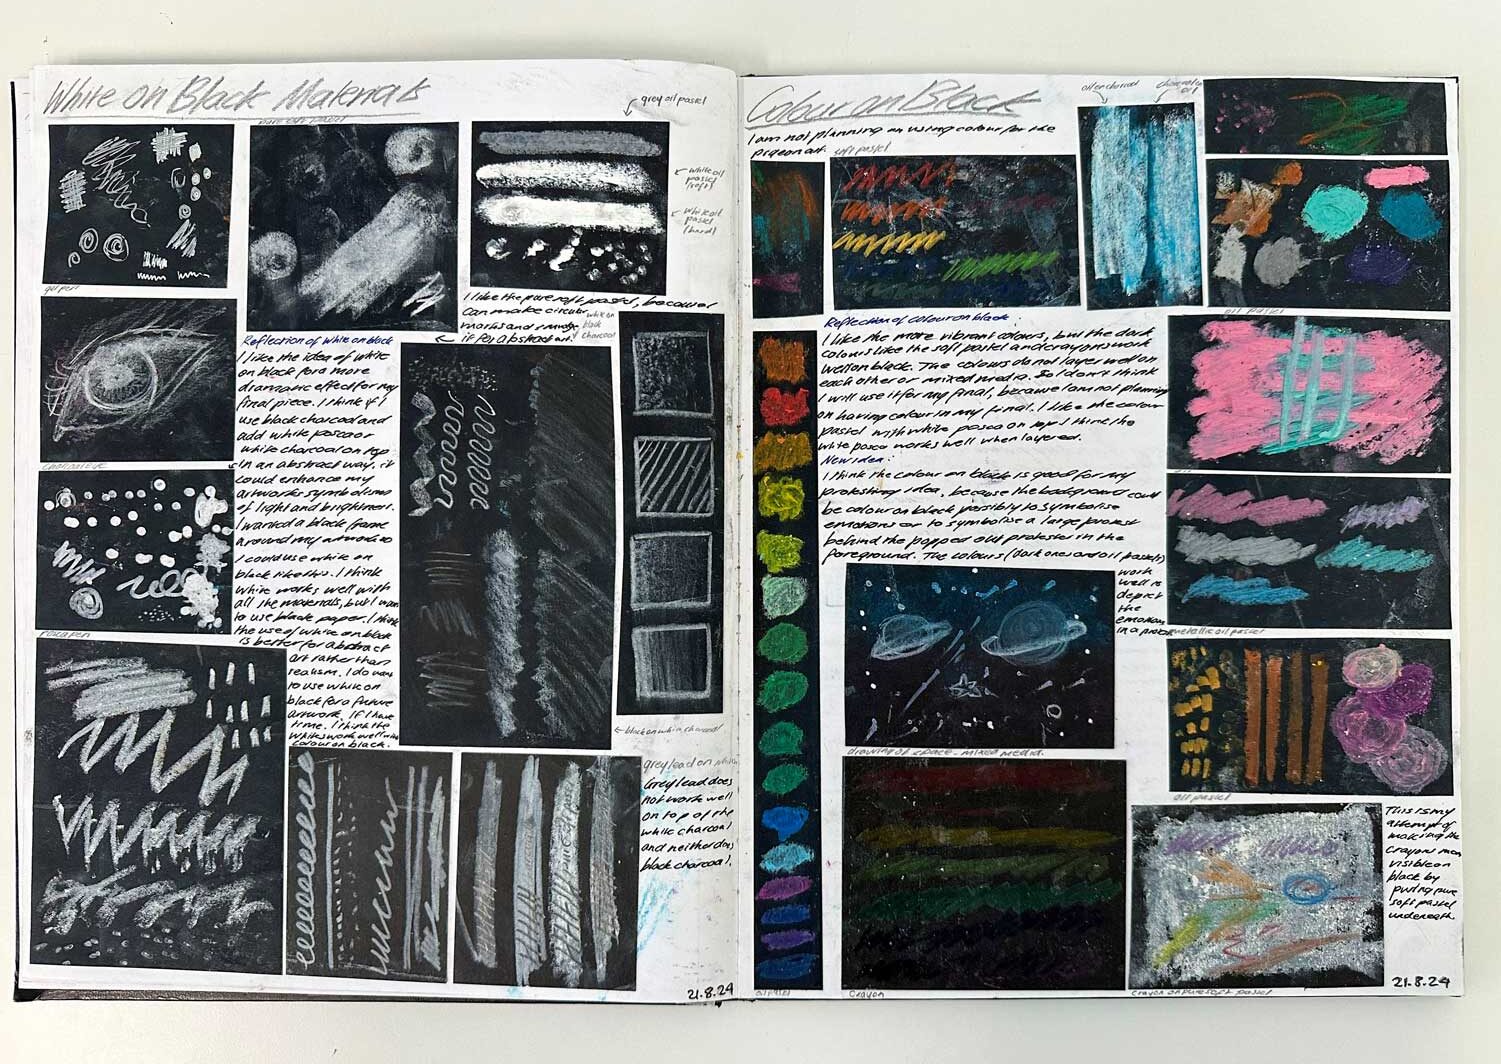 White on Black Materials
pure soft pastel
grey oil pastel
white oil
pastel
(soft)
white oil
pastel
(hard)
gel pen
I like the pure soft pastel, because I
can make circular
marks and smudge
it for abstract art.
white on
black
charcoal
Reflection of white on black
I like the idea of white
on black for a more
dramatic effect for my
final piece. I think if I
use black charcoal and
add white posca or
white charcoal on top
in an abstract way. it
could enhance my
artworks symbolisms
of light and brightness.
I wanted a black frame
around my artwork so
I could use white on
black like this. I think
white works well with
all the materials, but I want
to use black paper. I think
the use of white on black
is better for abstract
art rather than
realism. I do want
to use white on
black for a future
artwork. If I have
time. I think the
whites work well with
colour on black.
charcoal eye
posca pen
black on white charcoal
grey lead on white
Grey lead does
not work well
on top of the
white charcoal
and neither does
black charcoal.
21.8.24
Colour on Black
I am not planning on using colour for the
pigeon art.
soft pastel
oil on charcoal
charcoal on
oil
oil pastel
Reflection of colour on black:
I like the more vibrant colours, but the dark
colours like the soft pastel and crayons work
well on black. The colours do not layer well on
each other or mixed media. So I don't think
I will use it for my final, because I am not planning
on having colour in my final. I like the colour
pastel with white posca on top I think the
white posca works well when layered.
New idea:
I think the colour on black is good for my
protesting idea, because the background could
be colour on black possibly to symbolise
emotions or to symbolise a large protest
behind the popped out protester in the
foreground. The colours (dark ones and oil pastels)
work
well to
depict
the
emotion
in a protest
metallic oil pastel
drawing of space - mixed media.
oil pastel
This is my
attempt of
making the
crayons more
visible on
black by
putting pure
soft pastel
underneath.
oil pastel
Crayon
Crayon on pure soft pastel
21.8.24